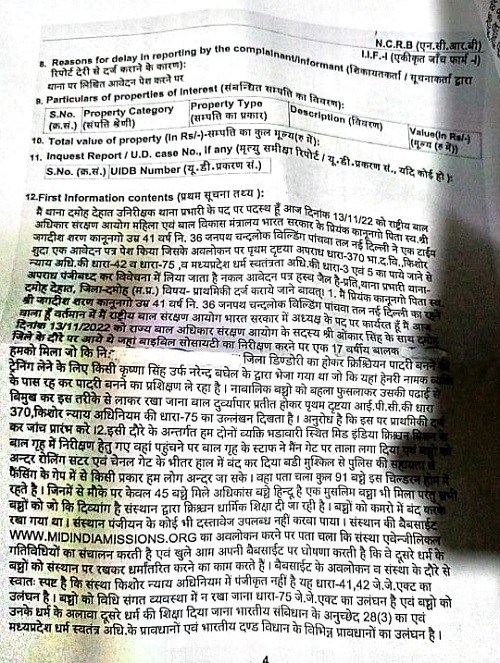 N.C.R.B (एन.सी.आर.बी)
I.I.F.-I (एकीकृत जाँच फार्म -I)
8. Reasons for delay in reporting by the complainant/informant (शिकायतकर्ता / सूचनाकर्ता द्वारा
रिपोर्ट देरी से दर्ज कराने के कारण):
थाना पर लिखित आवेदन पेश करने पर
9. Particulars of properties of interest (संबन्धित सम्पत्ति का विवरण):
S.No. Property Category Property Type Description (विवरण) Value(In Rs/-)
(क्र.सं.) (संपत्ति श्रेणी) (सम्पत्ति का प्रकार) (मूल्य (रु में))
10. Total value of property (In Rs/-)-सम्पत्ति का कुल मूल्य(रु में):
11. Inquest Report / U.D. case No., if any (मृत्यु समीक्षा रिपोर्ट / यू.डी.प्रकरण सं., यदि कोई हो ):
S.No. (क्र.सं.) UIDB Number (यू.डी.प्रकरण सं.)
12.First Information contents (प्रथम सूचना तथ्य ):
मै थाना दमोह देहात उनिरीक्षक थाना प्रभारी के पद पर पदस्थ हूँ आज दिनांक 13/11/22 को राष्ट्रीय बाल
अधिकार संरक्षण आयोग महिला एवं बाल विकास मंत्रालय भारत सरकार के प्रियंक कानूनगो पिता स्व.श्री
जगदीश शरण कानूनगो उम्र 41 वर्ष नि. 36 जनपथ चन्द्रलोक विल्डिंग पांचवा तल नई दिल्ली ने एक टाईप
शुदा एक आवेदन पत्र पेश किया जिसके अवलोकन पर प्रथम दृष्टया अपराध धारा-370 भा.द.वि.,किशोर
न्याय अधि.की धारा-42 व धारा-75 ,व मध्यप्रदेश धर्म स्वतंत्रता अधि.की धारा-3 एवं 5 का पाये जाने से
अपराध पंजीबध्द कर विवेचना में लिया जाता है नकल आवेदन पत्र हस्व जैल है-प्रति,थाना प्रभारी थाना-
दमोह देहात, जिला-दमोह (म.प्र.) विषय- प्राथमिकी दर्ज कराये जाने बावत्। 1. मैं प्रियंक कानूनगो पिता स्व.
श्री जगदीश शरण कानूनगो उम्र 41 वर्ष नि. 36 जनपथ चन्द्रलोक विल्डिंग पांचवा तल नई दिल्ली का रहने
वाला हूँ वर्तमान में मैं राष्ट्रीय बाल संरक्षण आयोग भारत सरकार में अध्यक्ष के पद पर कार्यरत हूँ मै आज
दिनांक 13/11/2022 को राज्य बाल अधिकार संरक्षण आयोग के सदस्य श्री ओंकार सिंह के साथ दमोह
जिले के दौरे पर आये थे जहां बाइबिल सोसायटी का निरीक्षण करने पर एक 17 वर्षीय बालक
हमको मिला जो कि नि: जिला डिण्डोरी का होकर क्रिश्चियन पादरी बनने की
ट्रेनिंग लेने के लिए किसी कृष्णा सिंह उर्फ नरेन्द्र बघेल के द्वारा भेजा गया था जो कि यहां हेनरी नामक व्यक्ति
के पास रह कर पादरी बनने का प्रशिक्षण ले रहा है। नाबालिक बच्चो को बहला फुसलाकर उसकी पढाई से
बिमुख कर इस तरीके से लाकर रखा जाना बाल दुर्व्यापार प्रतीत होकर पृथम दृष्टया आई.पी.सी.की धारा
370,किशोर न्याय अधिनियम की धारा-75 का उल्लंखन दिखता है। अनुरोध है कि इस पर प्राथमिकी दर्ज
कर जांच प्रारंभ करे ।2.इसी दौरे के अन्तर्गत हम दोनो व्यक्ति भडावारी स्थित मिड इंडिया क्रिश्चन मिशन के
बाल गृह में निरीक्षण हेतु गए वहां पहुंचने पर बाल गृह के स्टाफ ने मैन गेट पर ताला लगा दिया एवं बच्चो को
अन्दर रोलिंग सटर एवं चेनल गेट के भीतर हाल में बंद कर दिया बडी मुस्किल से पुलिस की सहायता से
फैंसिंग के गेप में से किसी प्रकार हम लोग अन्दर जा सके। वहा पता चला कुल 91 बच्चे इस चिल्डरन होम में
रहते है। जिनमें से मौके पर केवल 45 बच्चे मिले अधिकांस बच्चे हिन्दू है एक मुसलिम बच्चा भी मिला परंतु सभी
बच्चों को जो कि दिव्यांग है संस्थान द्वारा क्रिश्चन धार्मिक शिक्षा दी जा रही है। बच्चों को कमरो में बंद करके
रखा गया था। संस्थान पंजीयन के कोई भी दस्तावेज उपलब्ध नहीं करवा पाया। संस्थान की वैबसाईट
WWW.MIDINDIAMISSIONS.ORG का अवलोकन करने पर पता चला कि संस्था एवेन्जीलिकल
गतिविधियों का संचालन करती है एवं खुले आम अपनी वैबसाईट पर घोषणा करती है कि वे दुसरे धर्म के
बच्चों को संस्थान पर रखकर धर्मांतरित करने का काम करते है। वैबसाईट के अवलोकन व संस्था के दौरे से
स्वातः स्पष्ट है कि संस्था किशोर न्याय अधिनियम में पंजीकृत नहीं है यह धारा-41,42 जे.जे.एक्ट का
उलंघन है। बच्चो को विधि संगत व्यवस्था में न रखा जाना धारा-75 जे.जे.एक्ट का उलंघन है एवं बच्चो को
उनके धर्म के अलावा दूसरे धर्म की शिक्षा दिया जाना भारतीय संबिधान के अनुच्छेद 28(3) का एवं
मध्यप्रदेश धर्म स्वतंत्र अधि.के प्रावधानों एवं भारतीय दण्ड विधान के विभिन्न प्रावधानों का उलंघन है।
4